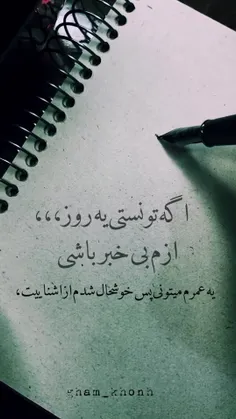 اگه تونستی یه روز،،،
ازم بی خبر باشی
یه عمرم میتونی پس خوشحال شدم از اشناییت،
gham_khonh